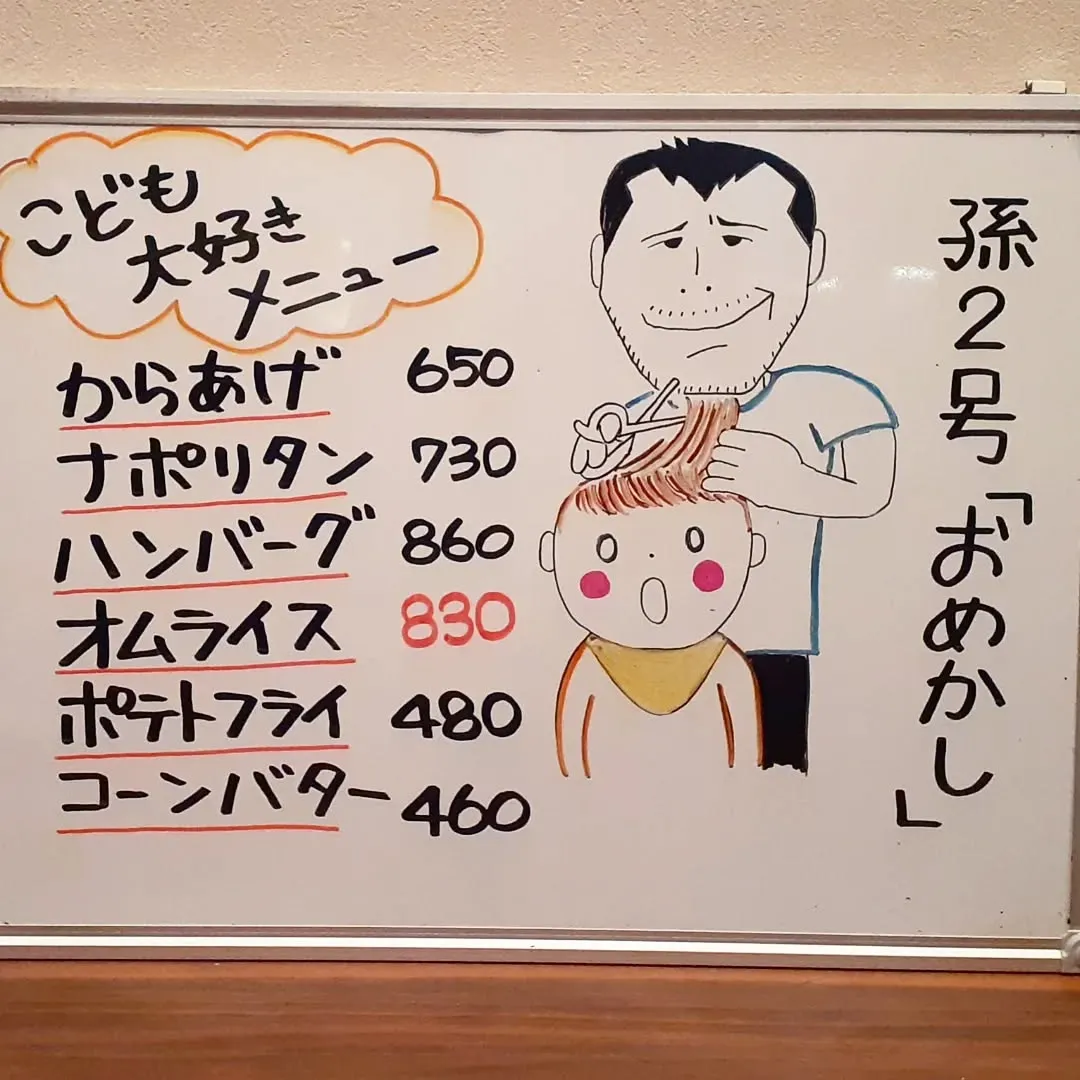 こども
大好き
メニュー
からあげ 650
ナポリタン 730
ハンバーグ 860
オムライス 830
ポテトフライ 480
コーンバター 460
孫2号「おめかし」